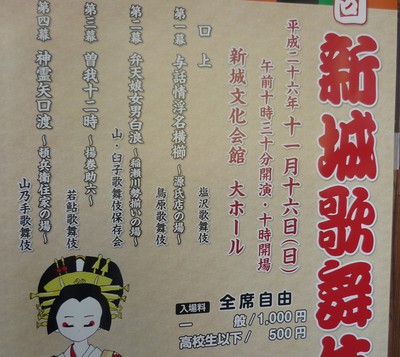 回 新城歌舞伎
平成二十六年 十一月十六日(日)
午前十時三十分開演・十時開場
新城文化会館 大ホール
口上
塩沢歌舞伎
第一幕 与話情浮名横櫛 ~源氏店の場~
鳥原歌舞伎
第二幕 弁天娘女男白浪 ~稲瀬川勢揃いの場~
山・臼子歌舞伎保存会
第三幕 曽我十二時 ~揚巻助六~
若鮎歌舞伎
第四幕 神霊矢口渡 ~頓兵衛住家の場~
山乃手歌舞伎
入場料 全席自由
一般/1,000円
高校生以下/500円